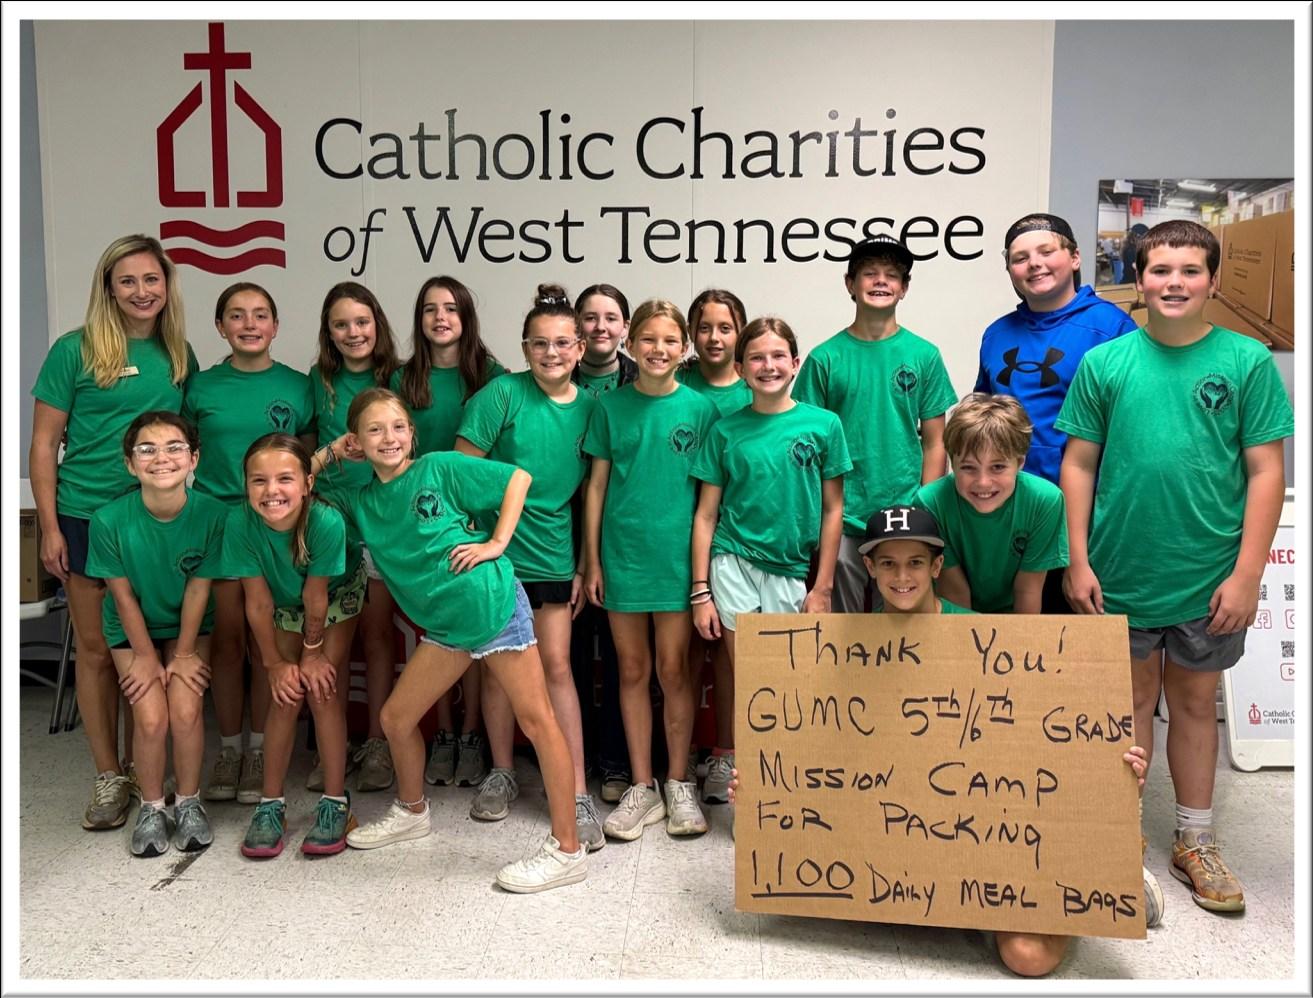 Catholic Charities
of West Tennessee
H
THANK YOU!
GUMC 5th/6th GRADE
MISSION CAMP
FOR PACKING
1,100 DAILY MEAL BAGS
Catholic Charities
of West Tennessee